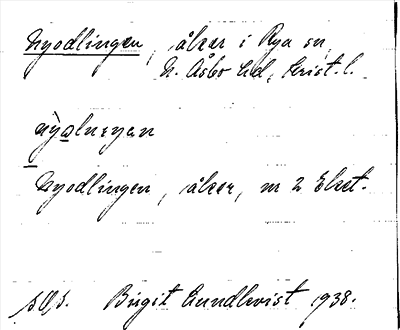 Nyodlingen, åker i Rya sn,
N. Åsbo hd, Krist. l.
nyodlingen, åker, nr 2 Eket.
Birgit Lundkvist 1938.